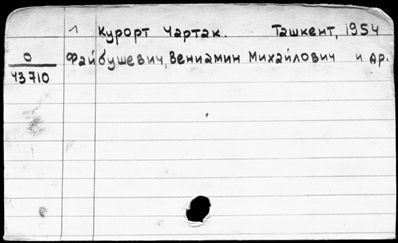 ^ Курорт Чартак. Ташкент, 1954
О
43710
Файбушевич, Вениамин Михайлович и др.